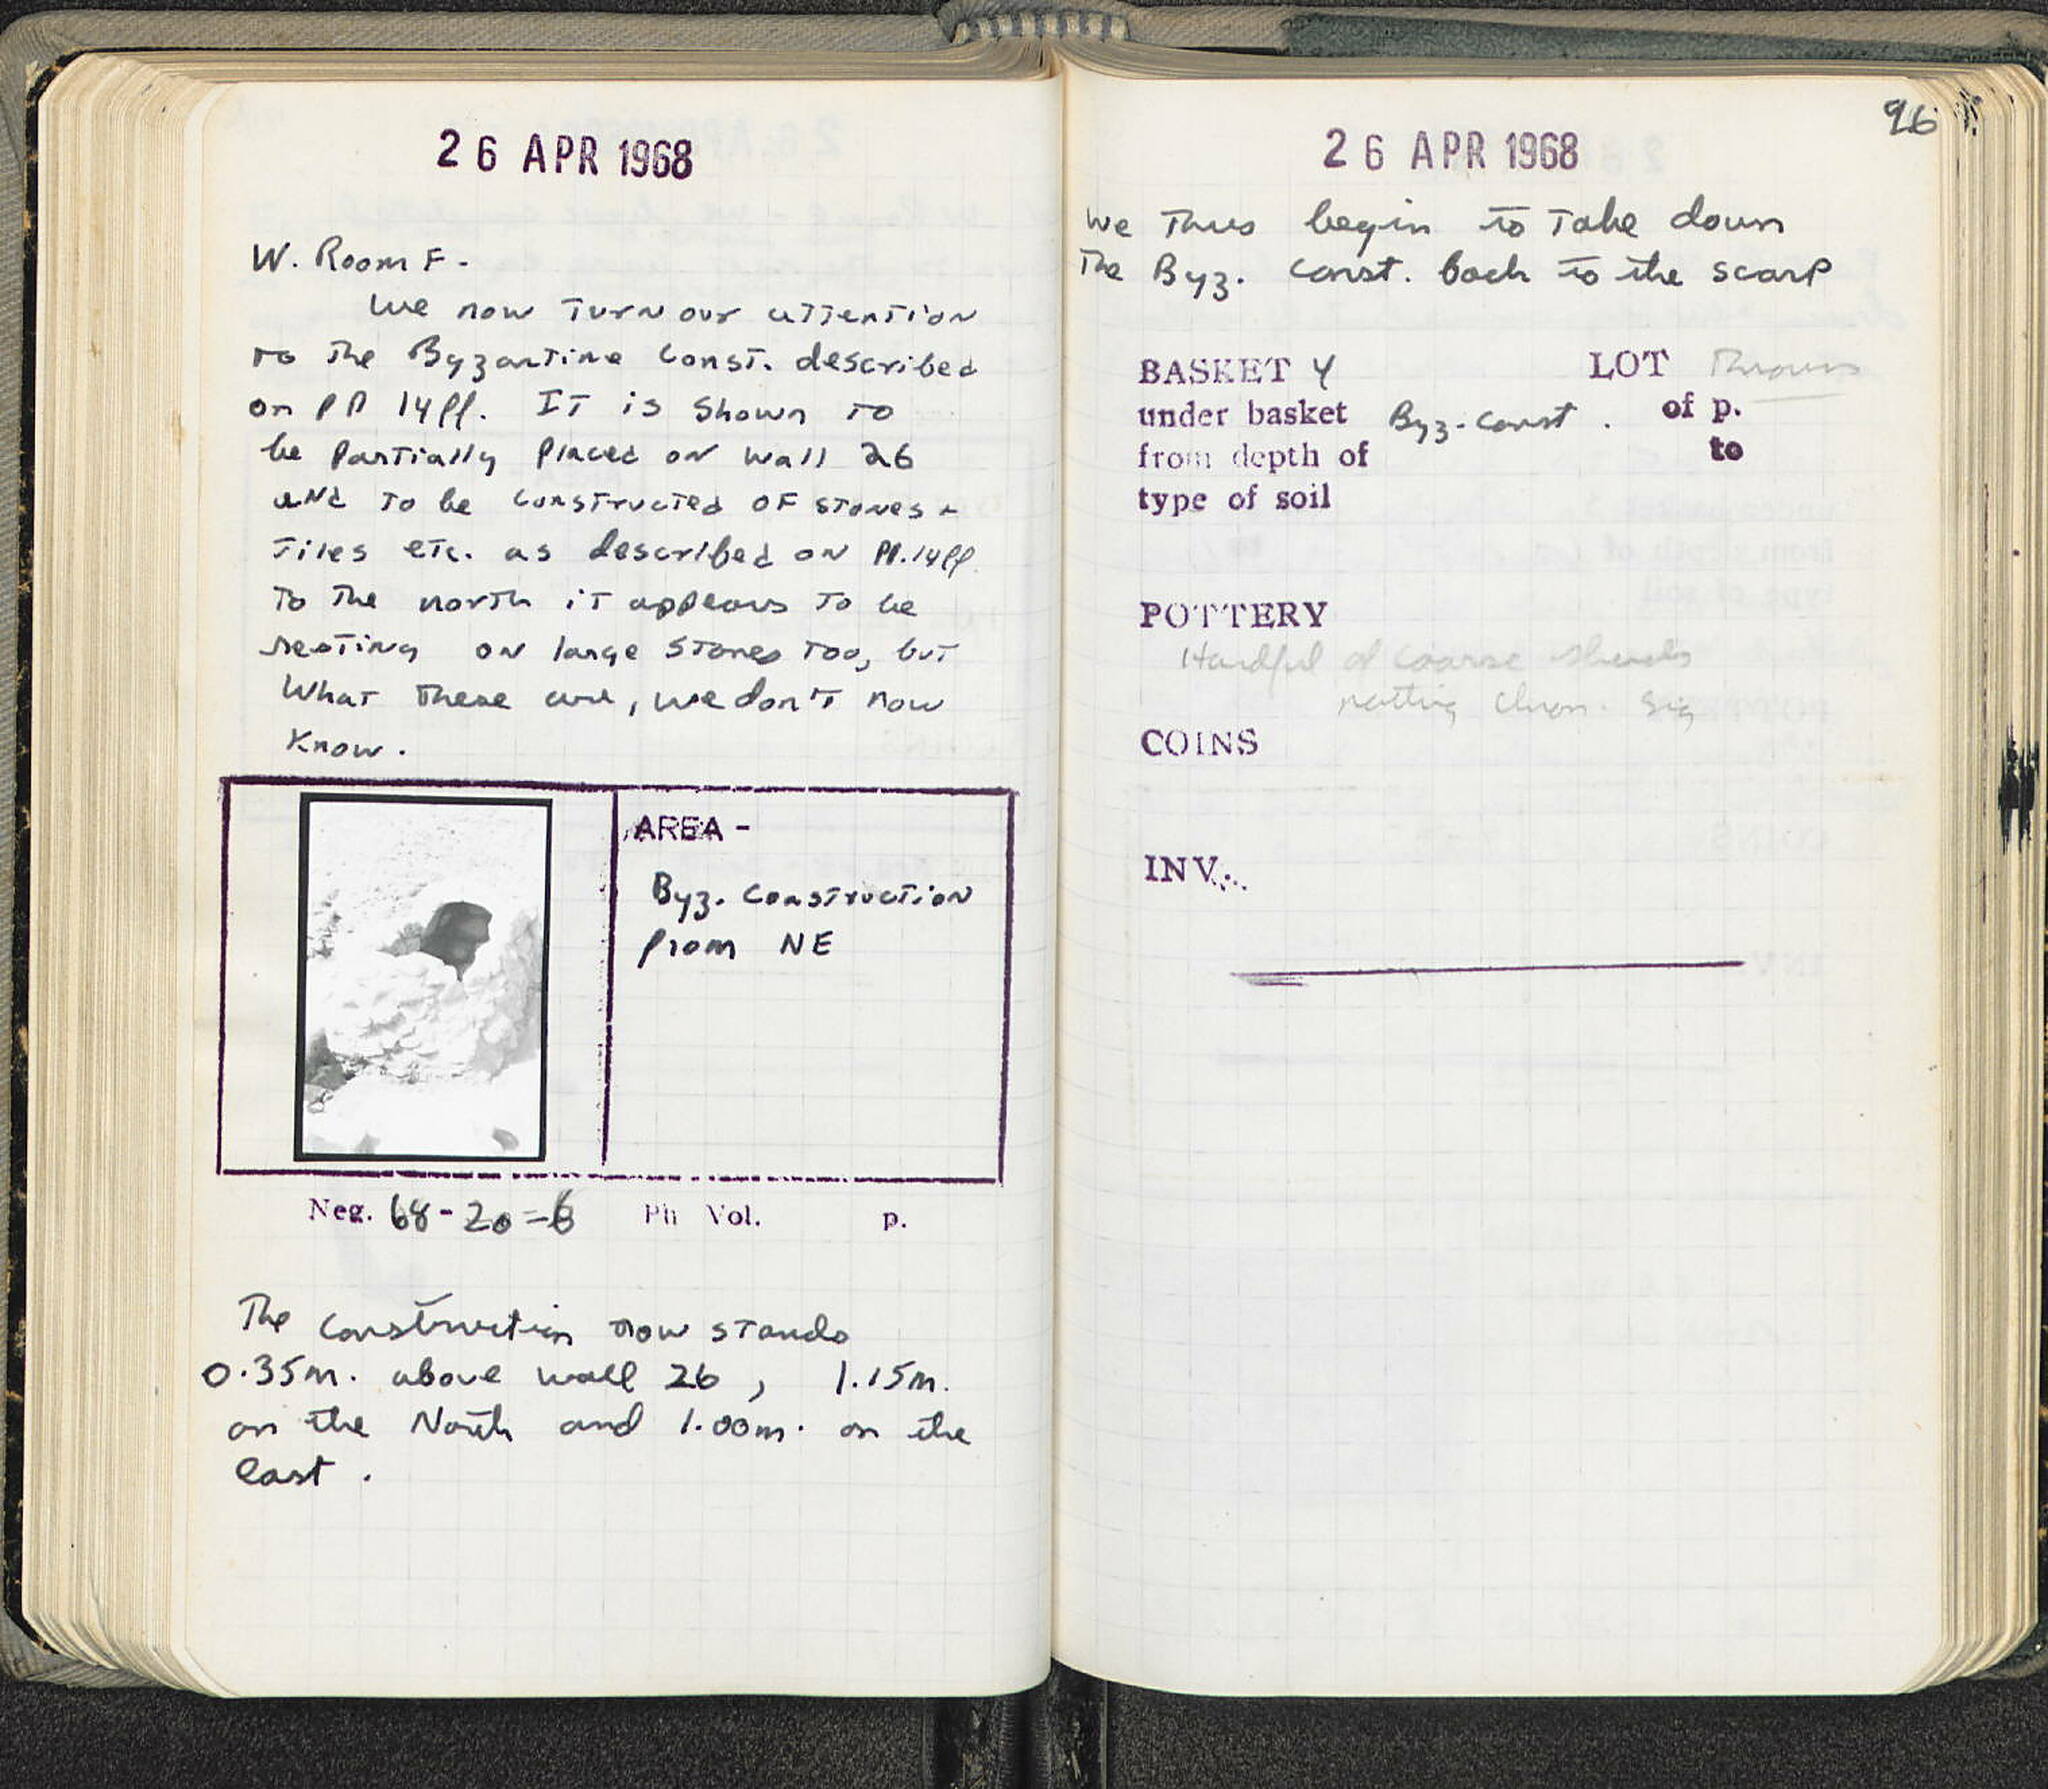 26 APR 1968
W. Room F-
We now turn our attention
to the Byzantine Const. described
on PP 14ff. It is shown to
be partially placed on wall 26
and to be constructed of stones &
tiles etc. as described on PP.14ff.
To the north it appears to be
resting on large stones too, but
what these are, we don't now
know.
AREA -
Byz. Construction
from NE
Neg. 68-20-6 Ph Vol. p.
The construction now stands
0.35m. above wall 26, 1.15m.
on the North and 1.00m. on the
East.
96
26 APR 1968
We thus begin to take down
the Byz. Const. back to the scarp
BASKET 4 LOT Thrown
under basket Byz. Const. of p.
from depth of to
type of soil
POTTERY
Handful of coarse sherds
nothing chron. sig
COINS
INV.